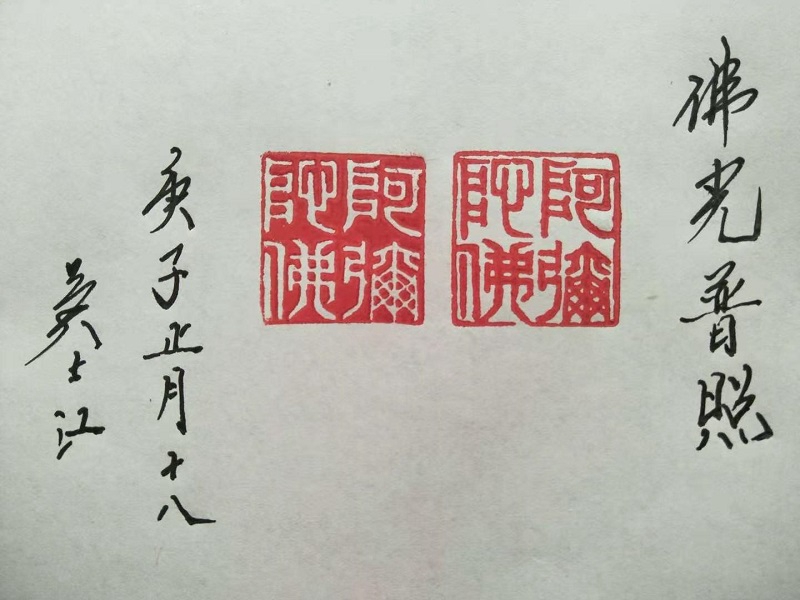 佛光普照
阿彌陀佛
阿彌陀佛
庚子正月十八
吴士江